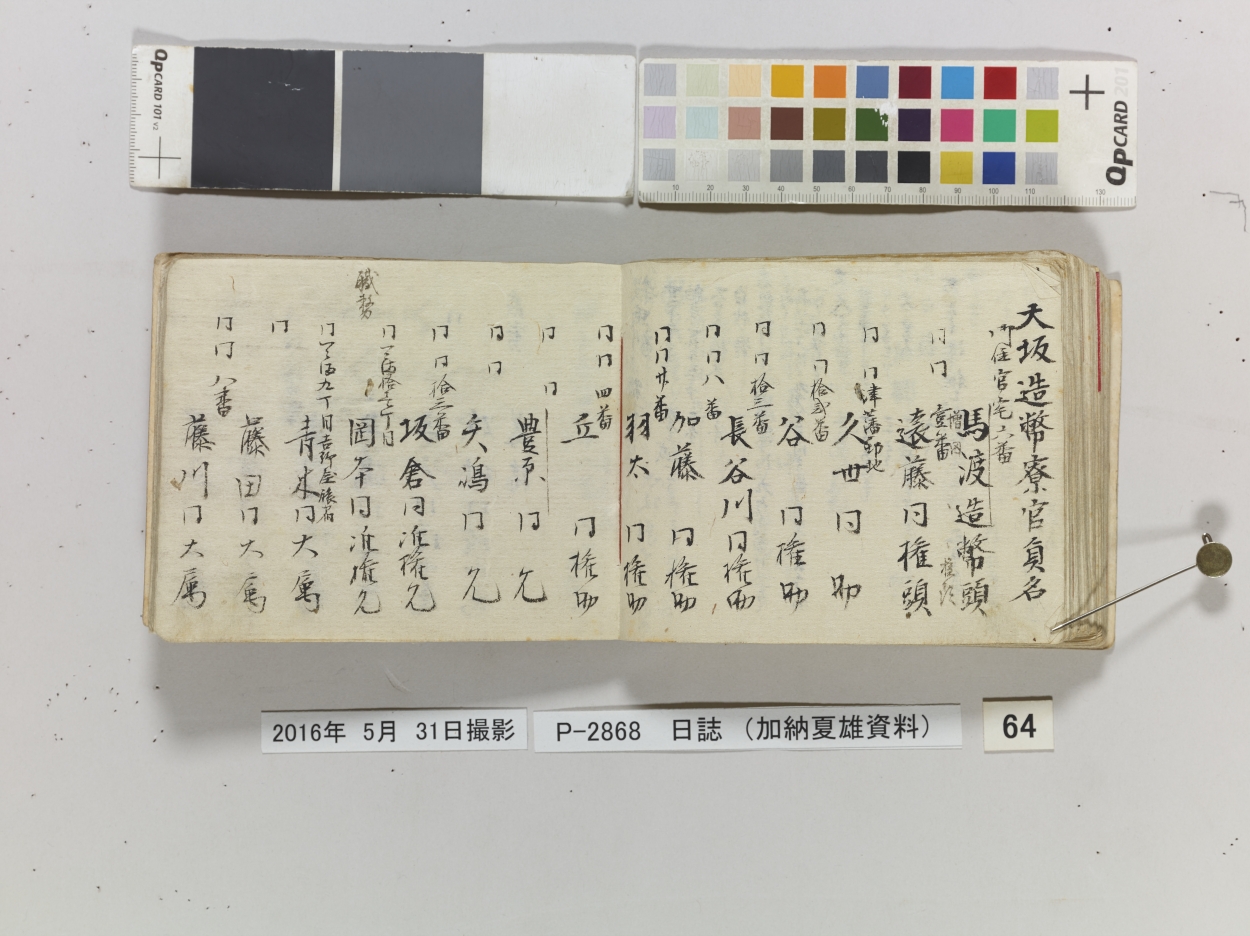 QPCARD 101 v2
QPCARD 201
10 20 30 40 50 60 70 80 90 100 110 130
大坂造幣寮官員名
官宅六番
馬渡造幣頭
権頭
同 同
壹番
遠藤同権頭
同 同津藩邸地
久世同 助
同 同拾弐番
谷 同権助
同 同拾三番
長谷川同権助
同同八番
加藤 同権助
同同廿番
羽太 同権助
同同四番
丘 同権助
同 同
豊原 同 允
同 同
矢嶋 同 允
同 同拾三番
坂倉同准権允
職務
同
岡本同准権允
同
青木同大属
同
藤田同大属
同同八番
藤川同大属
2016年 5月 31日撮影
P-2868 日誌 (加納夏雄資料)
64